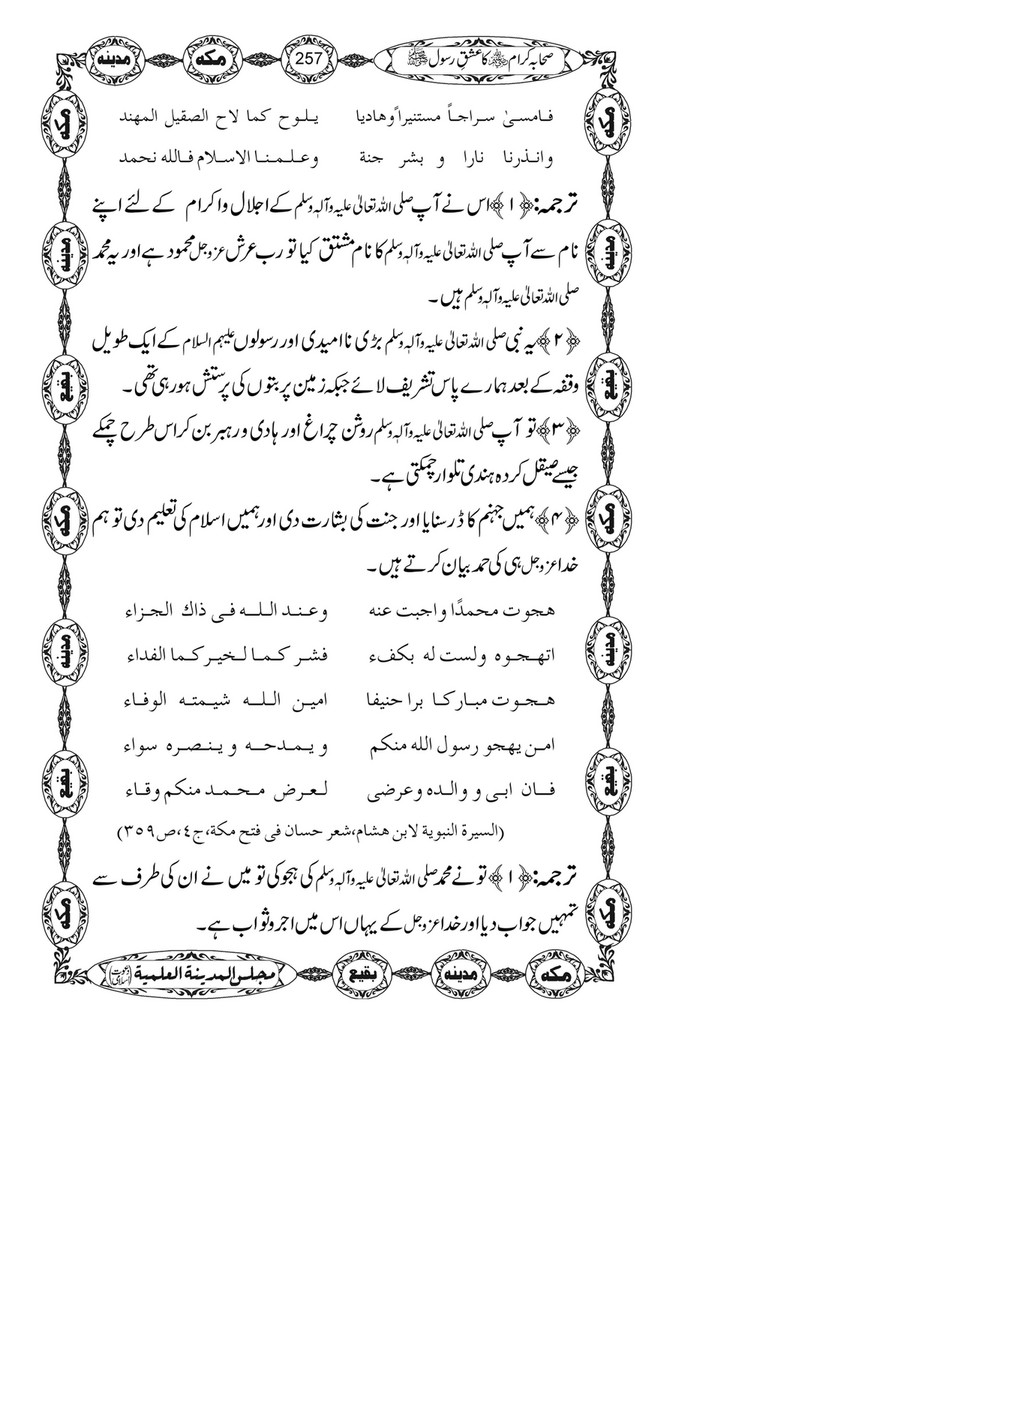 صحابہ کرام ﷺ کا عشق رسول ﷺ 257 مکہ مدینہ
فامسیٰ سراجاً مستنیراً وهاديا يلوح كما لاح الصقيل المهند
وانذرنا نارا و بشر جنة وعلمنا الاسلام فالله نحمد
ترجمہ: ﴿۱﴾اس نے آپ صلی اللہ تعالیٰ علیہ وآلہ وسلم کے اجلال واکرام کے لئے اپنے
نام سے آپ صلی اللہ تعالیٰ علیہ وآلہ وسلم کا نام مشتق کیا تو رب عرش عزوجل محمود ہے اور یہ محمد
صلی اللہ تعالیٰ علیہ وآلہ وسلم ہیں۔
﴿۲﴾یہ نبی صلی اللہ تعالیٰ علیہ وآلہ وسلم بڑی ناامیدی اور رسولوں علیہم السلام کے ایک طویل
وقفہ کے بعد ہمارے پاس تشریف لائے جبکہ زمین پر بتوں کی پرستش ہورہی تھی۔
﴿۳﴾تو آپ صلی اللہ تعالیٰ علیہ وآلہ وسلم روشن چراغ اور ہادی و رہبر بن کر اس طرح چمکے
جیسے صیقل کردہ ہندی تلوار چمکتی ہے۔
﴿۴﴾ہمیں جہنم کا ڈر سنایا اور جنت کی بشارت دی اور ہمیں اسلام کی تعلیم دی تو ہم
خدا عزوجل ہی کی حمد بیان کرتے ہیں۔
هجوت محمدًا واجبت عنه وعند الله فى ذاك الجزاء
اتهجوه ولست له بكفء فشركما لخيركما الفداء
هجوت مباركا برا حنيفا امين الله شيمته الوفاء
امن يهجو رسول الله منكم ويمدحه وينصره سواء
فان ابى و والده وعرضى لعرض محمد منكم وقاء
(السيرة النبوية لابن هشام،شعر حسان فى فتح مكة،ج٤،ص٣٥٩)
ترجمہ: ﴿۱﴾تو نے محمد صلی اللہ تعالیٰ علیہ وآلہ وسلم کی ہجو کی تو میں نے ان کی طرف سے
تمہیں جواب دیا اور خدا عزوجل کے یہاں اس میں اجر وثواب ہے۔
مکہ مدینہ بقیع مجلس المدینۃ العلمیۃ (دعوت اسلامی)
مکہ
مدینہ
بقیع
مکہ
مدینہ
بقیع
مکہ
مکہ
مدینہ
بقیع
مکہ
مدینہ
بقیع
مکہ